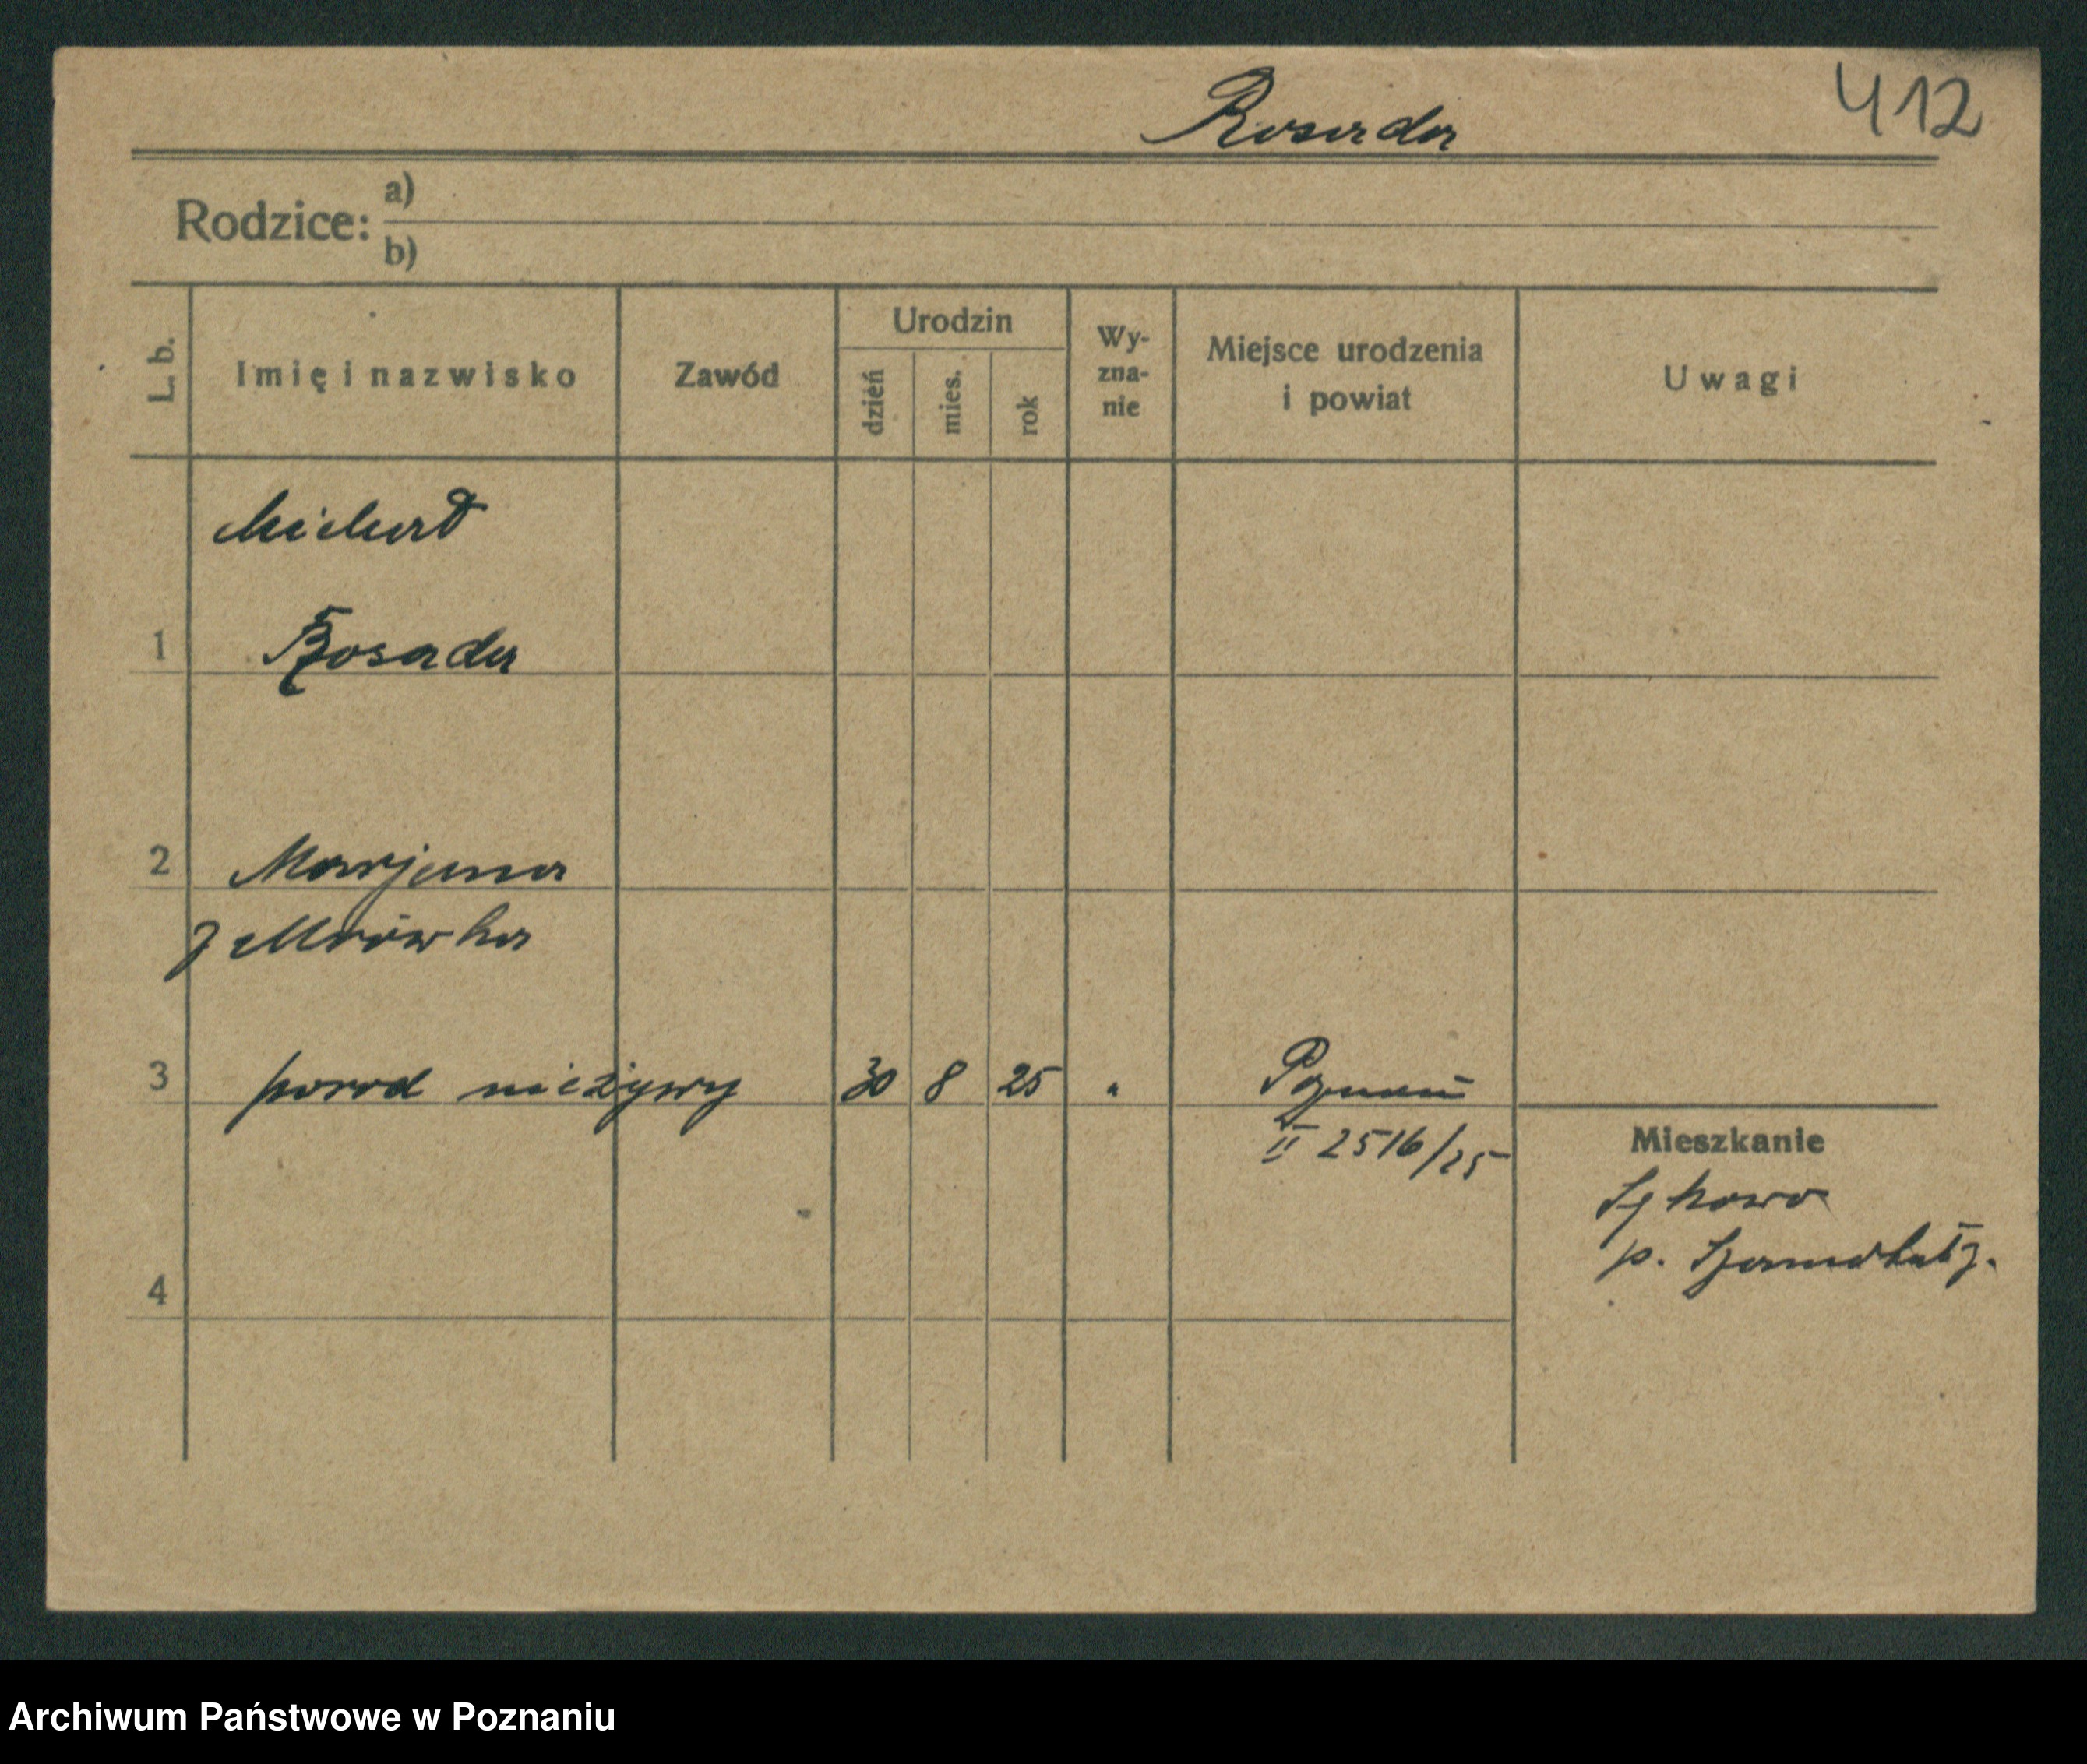 412
Rosada
Rodzice: a)
b)
L. b.
Imię i nazwisko
Zawód
Urodzin
dzień
mies.
rok
Wy-
zna-
nie
Miejsce urodzenia
i powiat
Uwagi
Michał
1 Rosada
2 Marjanna
z Mrówka
3 porod nieżywy 30 8 25 " Poznań
II 2516/25
Mieszkanie
Sękowo
p. Szamotuły.
4
Archiwum Państwowe w Poznaniu